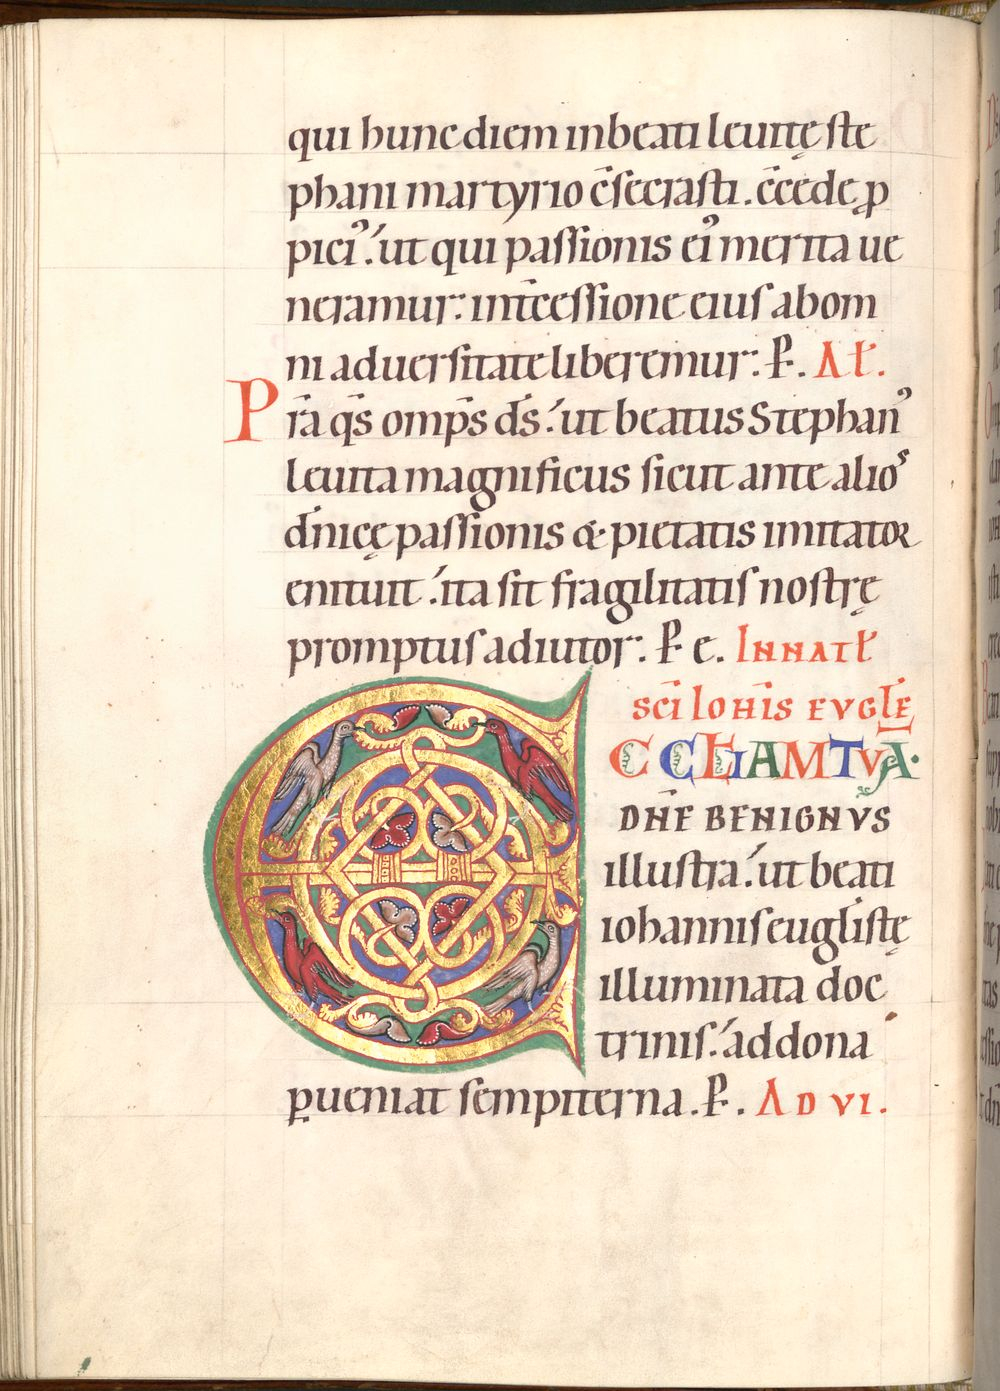 qui hunc diem in beati leuitę ste
phani martyrio c̄secrasti. c̄cede ꝓ
pici᾽.ut qui passionis ei᾽ merita ue
neramur: int̄cessione eius ab om
ni aduersitate liberemur: P̵. Al̵.
Pr̄a q̄s omp̄s d̄s. ut beatus Stephan᾽
leuita magnificus sicut ante alios
d̄nicę passionis & pietatis imitator
enituit. ita sit fragilitatis nostrę
promptus adiutor: P̵ c. IN NATL̵
SC̄I IOH̄IS EVGL̄E
ECCLIAM TVA·
DN̄E BENIGNVS
illustra. ut beati
iohannis euglistę
illuminata doc
trinis. ad dona
ꝑueniat sempiterna. P̵. AD VI.